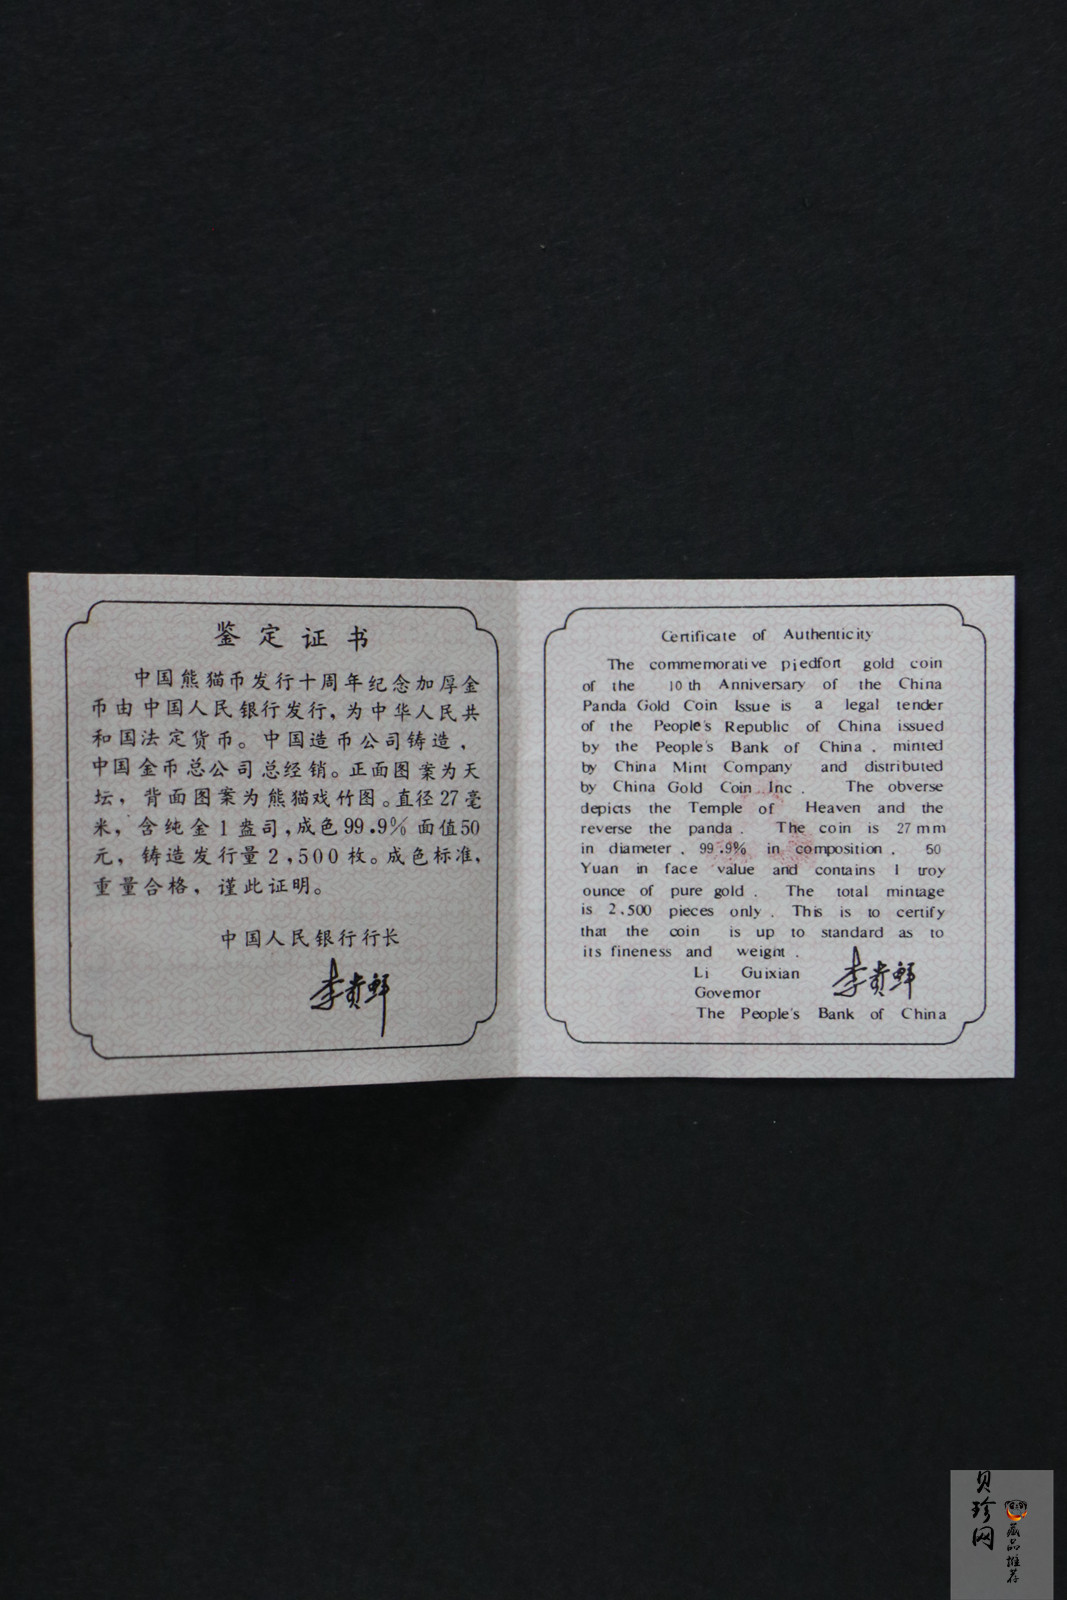 鉴定证书
中国熊猫币发行十周年纪念加厚金
币由中国人民银行发行，为中华人民共
和国法定货币。中国造币公司铸造，
中国金币总公司总经销。正面图案为天
坛，背面图案为熊猫戏竹图。直径27毫
米，含纯金1盎司，成色99.9%面值50
元，铸造发行量2,500枚。成色标准，
重量合格，谨此证明。
中国人民银行行长
李贵鲜
Certificate of Authenticity
The commemorative piedfort gold coin
of the 10th Anniversary of the China
Panda Gold Coin Issue is a legal tender
of the People's Republic of China issued
by the People's Bank of China, minted
by China Mint Company and distributed
by China Gold Coin Inc. The obverse
depicts the Temple of Heaven and the
reverse the panda. The coin is 27mm
in diameter, 99.9% in composition, 50
Yuan in face value and contains 1 troy
ounce of pure gold. The total mintage
is 2,500 pieces only. This is to certify
that the coin is up to standard as to
its fineness and weight.
Li Guixian 李贵鲜
Governor
The People's Bank of China
贝珍网
藏品推荐